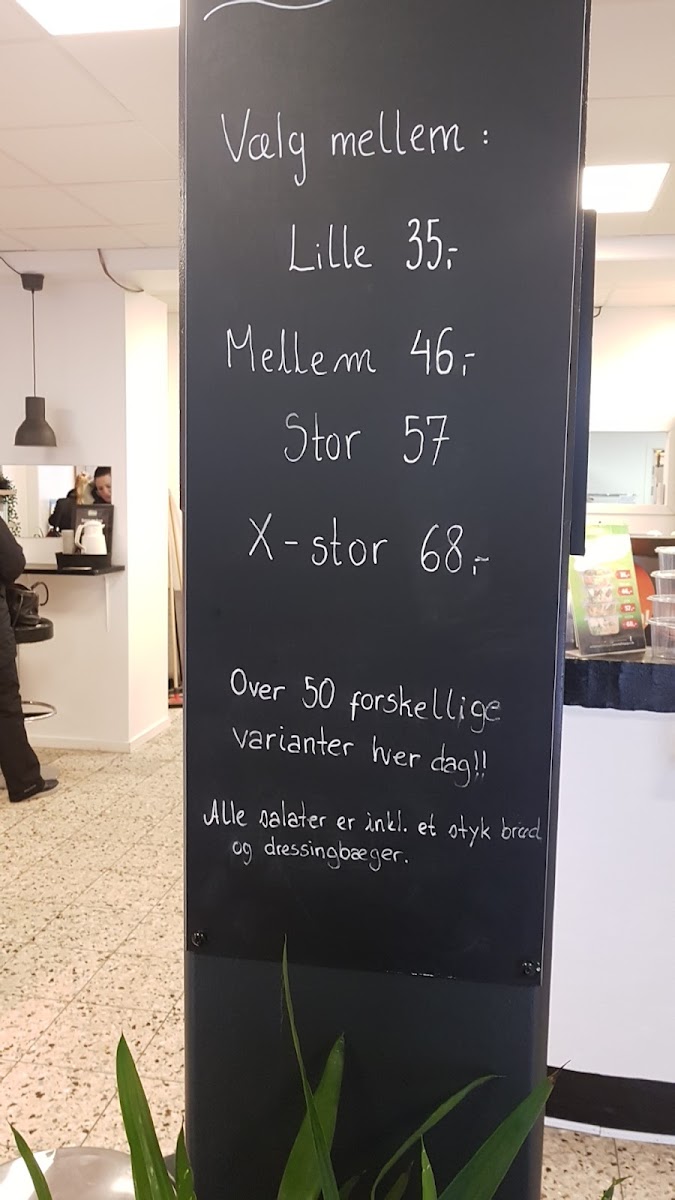 Vælg mellem :
Lille 35,-
Mellem 46,-
Stor 57
X-stor 68,-
Over 50 forskellige
varianter hver dag!!
Alle salater er inkl. et styk brød
og dressingbæger.